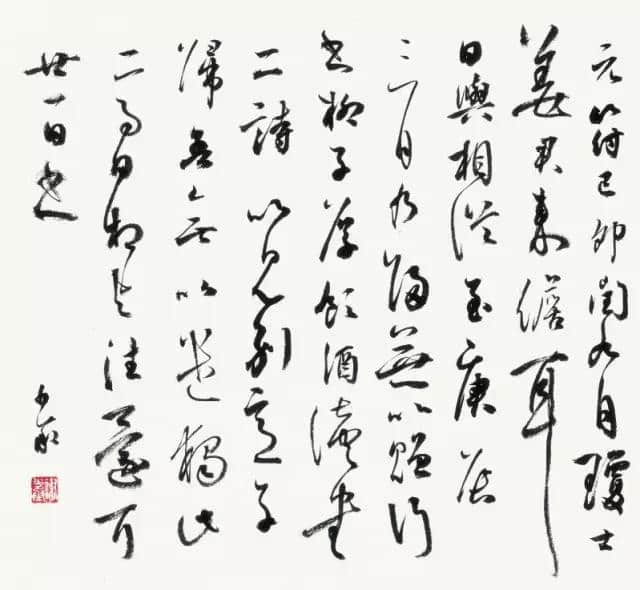 元符己卯閏九月瓊士
姜君來儋耳
日與相從至庚辰
三月乃歸無以贈行
書柳子厚飲酒讀書
二詩以見別意子
歸吾无以遣獨此
二事日相與往還耳
廿一日書